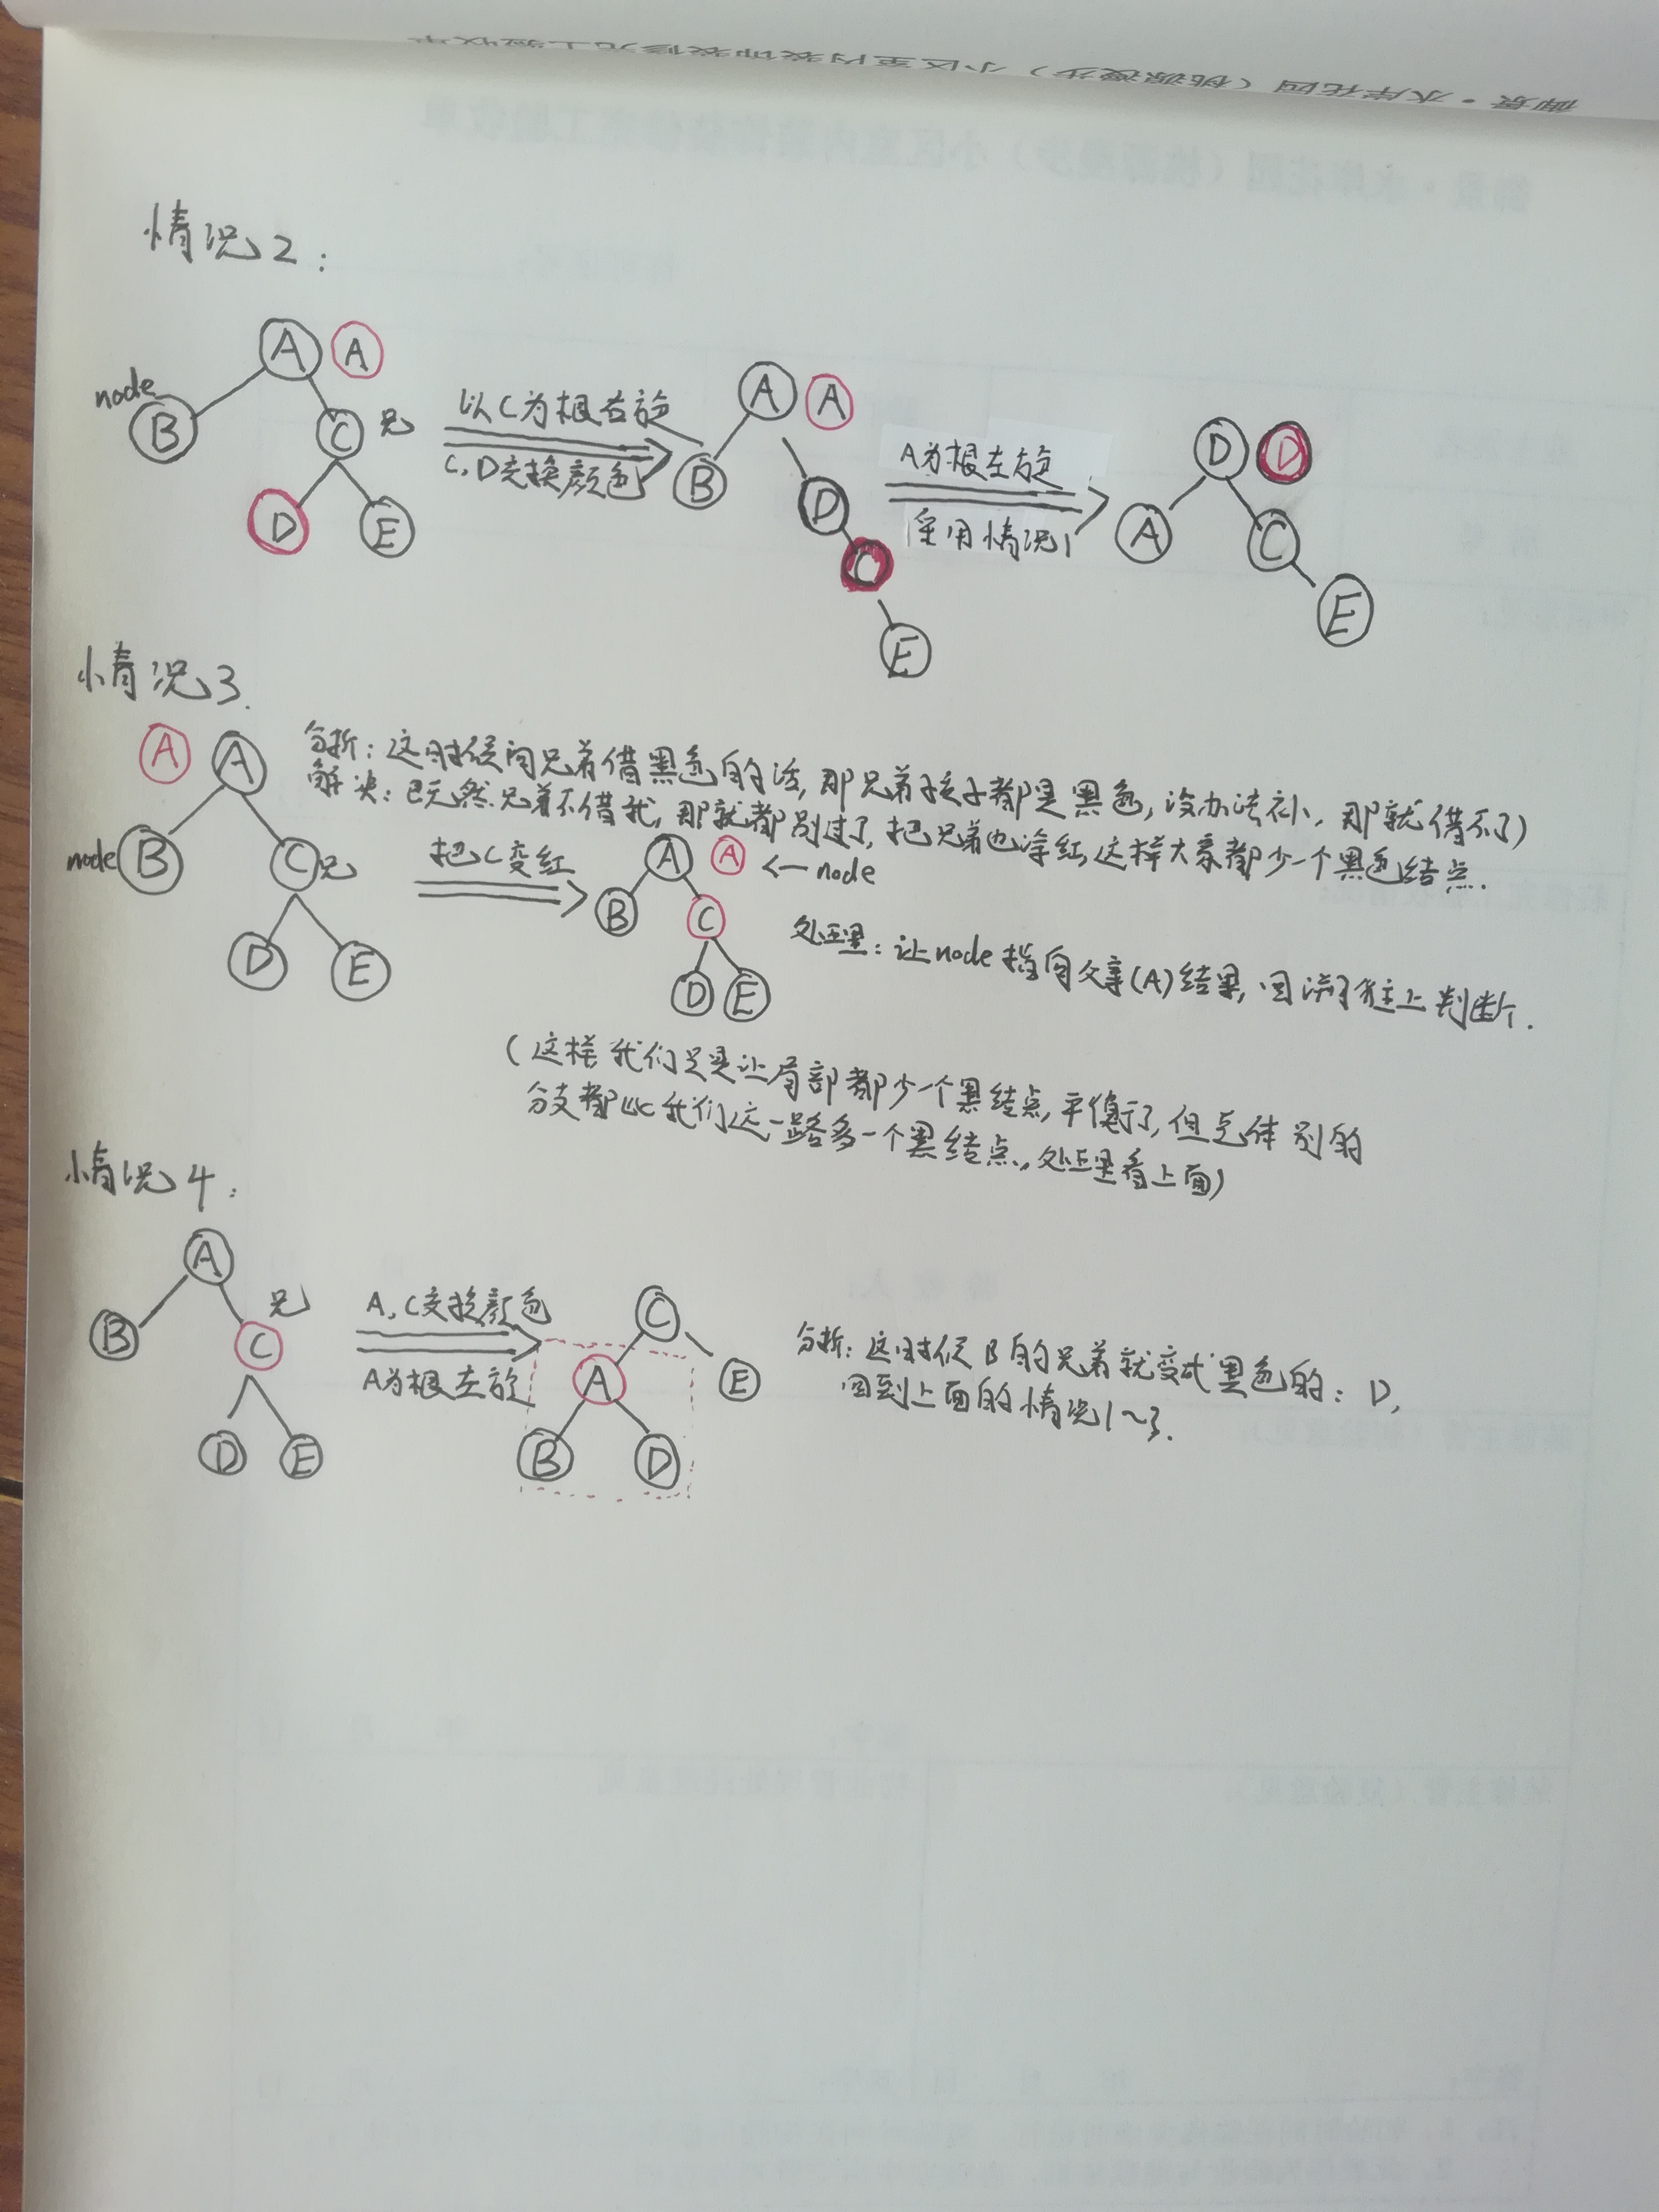 御景·水岸花园（桃源漫步）小区室内装饰装修完工验收单
情况2：
A A
node
B
C 兄
D
E
以C为根右旋
C,D交换颜色
A A
B
D
C
E
A为根左旋
采用情况1
D D
A
C
E
情况3.
A A
分析：这时候向兄弟借黑色的话,那兄弟孩子都是黑色,没办法补,那就借不了)
解决：既然兄弟不借我,那就都别过了,把兄弟也涂红,这样大家都少一个黑色结点.
node B
C兄
D
E
把C变红
A A ←node
B
C
D E
处理：让node指向父亲(A)结果,回溯往上判断.
(这样我们只是让局部都少一个黑结点,平衡了,但总体别的
分支都比我们这一路多一个黑结点,处理看上面)
情况4：
A
B
C 兄
D
E
A,C交换颜色
A为根左旋
C
A
E
B
D
分析：这时候B的兄弟就变成黑色的：D,
回到上面的情况1~3.